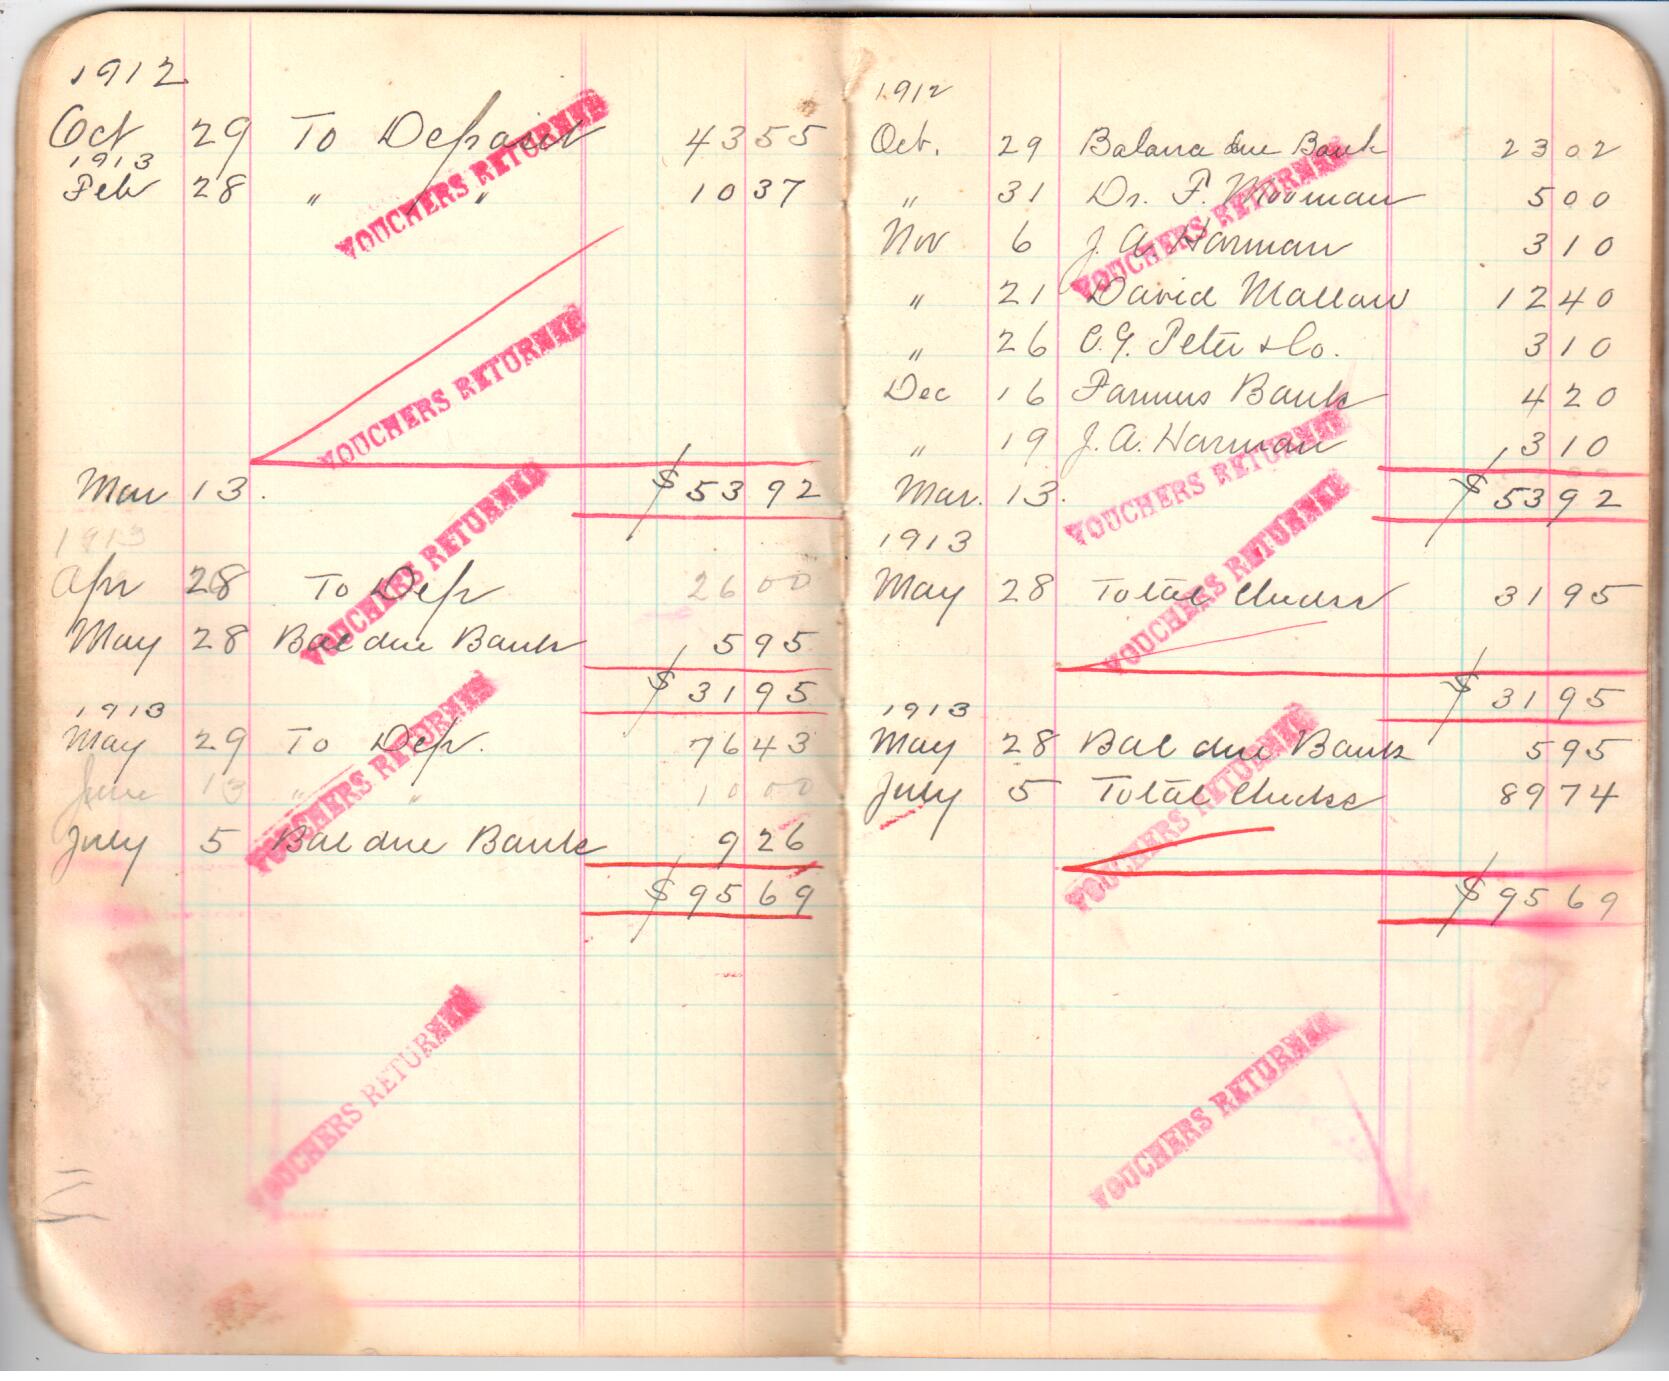 1912
Oct 29 To Deposit 43 55
1913
Feb 28 " " 10 37
VOUCHERS RETURNED
VOUCHERS RETURNED
Mar 13. $53 92
VOUCHERS RETURNED
1913
Apr 28 To Dep 26 00
May 28 Bal due Bank 5 95
$31 95
1913
May 29 To Dep. 76 43
June 13 " " 10 00
VOUCHERS RETURNED
July 5 Bal due Bank 9 26
$95 69
VOUCHERS RETURNED
1912
Oct. 29 Balance due Bank 23 02
" 31 Dr. F. Mooman 5 00
Nov 6 J. A. Harman 3 10
VOUCHERS RETURNED
" 21 David Mallow 12 40
" 26 C. G. Peter & Co. 3 10
Dec 16 Farmers Bank 4 20
" 19 J. A. Harman 3 10
VOUCHERS RETURNED
Mar. 13. $53 92
1913
May 28 Total Checks 31 95
VOUCHERS RETURNED
$31 95
1913
May 28 Bal due Bank 5 95
July 5 Total Checks 89 74
VOUCHERS RETURNED
$95 69
VOUCHERS RETURNED